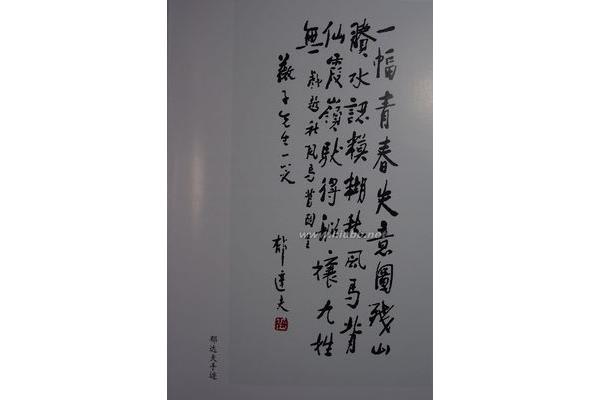 一幅青春失意圖殘山
賸水認糢糊秋風馬背
仙霞嶺馱得船孃九姓
無
戲題秋風馬背圖呈
子先生一笑
郁達夫
郁达夫手迹